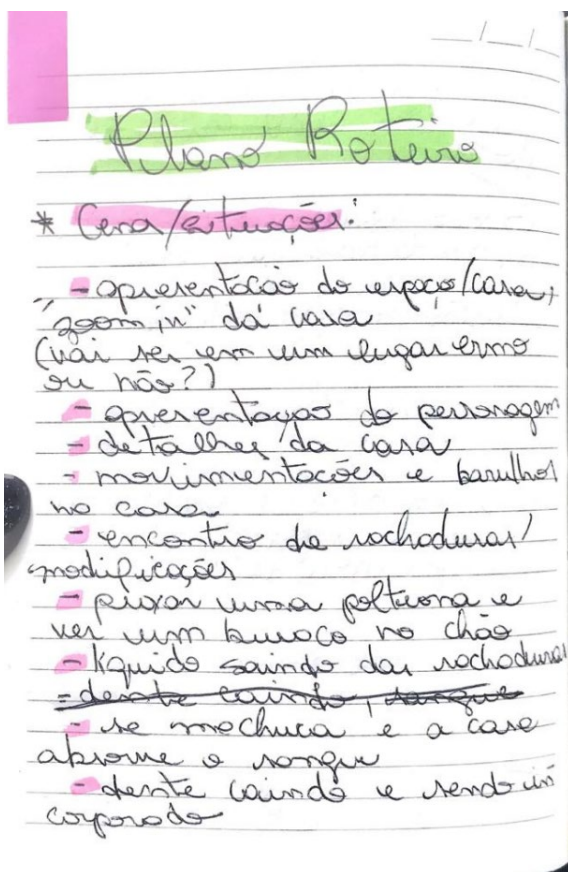 Plano Roteiro
* Cena/situações:
- apresentação do espaço/casa,
"zoom in" da casa
(vai ser em um lugar ermo
ou não?)
- apresentação do personagem
- detalhes da casa
- movimentações e barulhos
na casa
- encontro de rachaduras/
modificações
- puxar uma poltrona e
ver um buraco no chão
- líquido saindo das rachaduras
- dente caindo, sangue
- se machuca e a casa
absorve o sangue
- dente caindo e sendo in
corporado